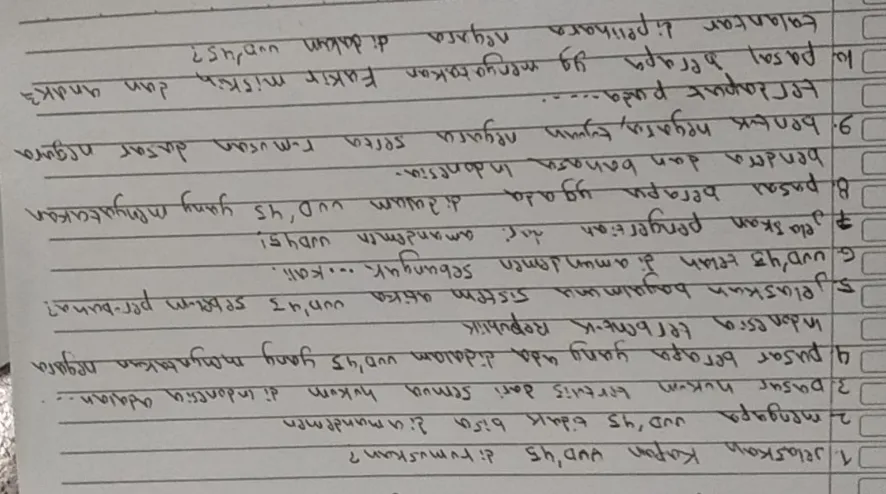 1. Jelaskan kapan UUD'45 dirumuskan?
2. mengapa UUD'45 tidak bisa diamandemen
3. Dasar hukum tertulis dari semua hukum di indonesia adalah ...
4 pasar berapa yang ada didalam UUD'45 yang menyatakan negara
indonesia terbentuk Republik
5. jelaskan bagaimana sistem UUD'45 sebelum
6. UUD'45 telah diamandemen sebanyak ... kali.
7 jelaskan pengertian dari amandemen UUD45!
8. pasal berapa yg ada didalam UUD'45 yang menyatakan
bendera dan bahasa Indonesia.
9. bentuk negara, tujuan negara serta rumusan dasar negara
terdapat pada .....
10. pasal berapa yg menyatakan Fakir miskin, dan anak2
talantar dipelihara negara didalam UUD'45?